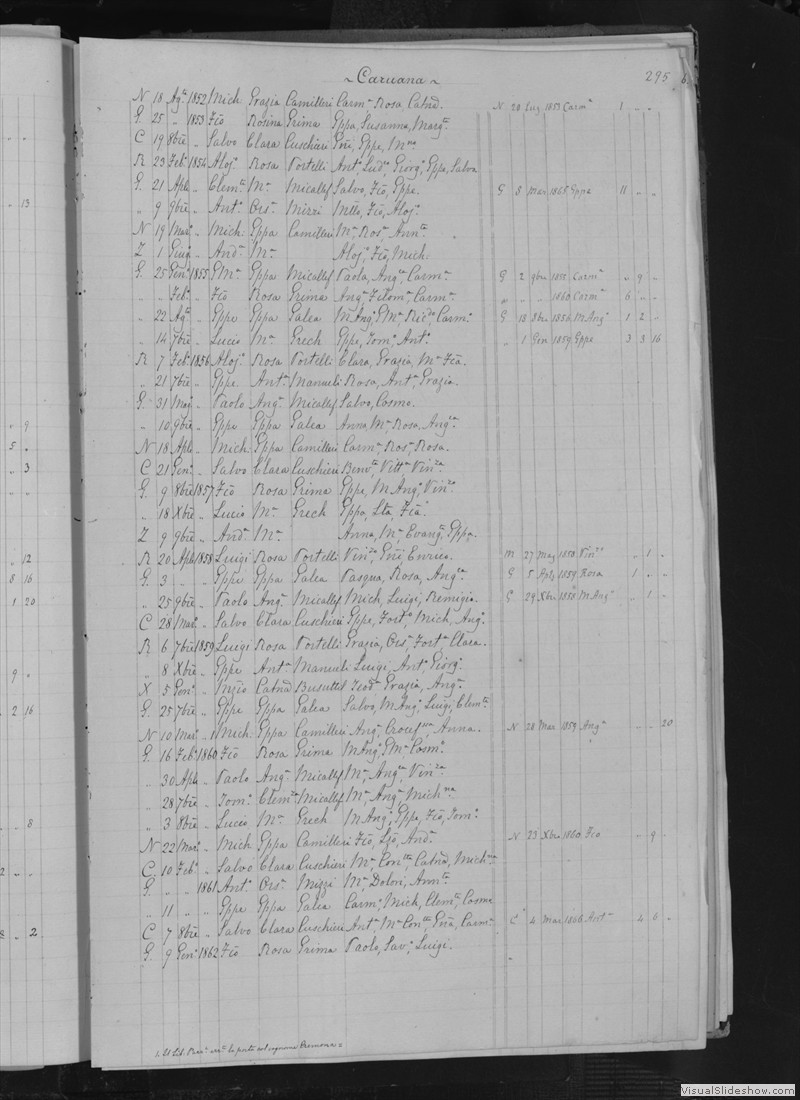 ~ Caruana ~ 295
N 18 Ag° 1852 Mich Grazia Camilleri Carm° Rosa Catnd. N 28 Lug 1853 Carm° 1 " "
G 25 " 1853 Fco Rosina Grima Eppa, Susanna, Margta
C 19 8bre " Salvo Clara Cuschieri Eppe, Mna
R 23 Feb° 1854 Aloj° Rosa Portelli Ant° Lud° Giorg° Eppe, Salva
G 21 Aple " Clemte Ma Micallef Salvo, Fco, Eppe. G 8 Mar 1865 Eppe 11 " "
" 9 9bre " Ant° Ors° Mizzi Mtto, Fco, Aloj°
N 19 Mar° " Mich Eppa Camilleri Ma Ros° Annta
Z 1 Giug. " And° Ma Aloj° Fco, Mich
G 25 Gen° 1855 Eppa Micallef Paola, Angca Carma G 2 9bre 1855 Carma " 9 "
" " Feb° " Fco Rosa Grima Angca Filoma, Carma " " " 1860 Carma 6 " "
" 22 Ag° " Eppe Eppa Galea M Ang° Carm° G 18 8bre 1856 M Ang° 1 2 "
" 14 7bre " Lucio Ma Grech Eppe, Tom° Ant° " 1 Gen 1859 Eppe 3 3 16
R 7 Feb° 1856 Aloj° Rosa Portelli Clara, Grazia, Ma Fca.
" 21 7bre " Eppe Anta Manueli Rosa, Anta Grazia.
G 31 Mag° " Paolo Anga Micallef Salvo, Cosmo.
" 10 9bre " Eppe Eppa Galea Anna, Ma Rosa, Angca
N 18 Aple " Mich Eppa Camilleri Carma Rosa, Rosa.
C 21 Gen° " Salvo Clara Cuschieri Benvta Vitta Vinza
G 9 8bre 1857 Fco Rosa Grima Eppe, M Ang° Vinzo
" 18 Xbre " Lucio Ma Grech Eppa, Fca
Z 9 9bre " And° Ma Anna, Ma Evangta Eppa.
R 20 Aple 1858 Luigi Rosa Portelli Vinza Enrica. M 27 Mag 1858 Vinza " 1 "
G 3 " " Eppe Eppa Galea Pasqua, Rosa, Angca G 5 Aple 1859 Rosa 1 " "
" 25 9bre " Paolo Anga Micallef Mich, Luigi, Remigia. G 29 Xbre 1858 M Ang° " 1 "
C 28 Mar° " Salvo Clara Cuschieri Eppe, Fort° Mich, Ang°
R 6 7bre 1859 Luigi Rosa Portelli Grazia, Orsa Forta Clara.
" 8 Xbre " Eppe Anta Manueli Luigi, Ant° Giorg°
X 5 Gen° " Nzio Catnd Busuttil Grazia, Anga
G 25 7bre " Eppe Eppa Galea Salvo, M Ang° Luigi, Clemte
N 10 Mar° " Mich Eppa Camilleri Anga Crocefna, Anna. N 28 Mar 1859 Anga " " 20
G 16 Feb° 1860 Fco Rosa Grima M Ang° Cosm°
" 30 Aple " Paolo Anga Micallef Ma Angca Vinza
" 28 7bre " Tom° Clemza Micallef Ma Anga Michna
" 3 8bre " Lucio Ma Grech M Ang° Eppe, Fco, Tom°
N 22 Mar° " Mich Eppa Camilleri Fco, Lzo, And° N 23 Xbre 1860 Fco " 9 "
C 10 Feb° " Salvo Clara Cuschieri Ma Contta Catnd, Michna
G " " 1861 Ant° Orsa Mizzi Ma Dolori, Annta
" 11 " " Eppe Eppa Galea Carm° Mich, Clemte Cosmo
C 7 8bre " Salvo Clara Cuschieri Ant° Ma Contta Carma C 4 Mar 1866 Ant° 4 6 "
G 9 Gen° 1862 Fco Rosa Grima Paolo, Sav° Luigi.
VisualSlideshow.com